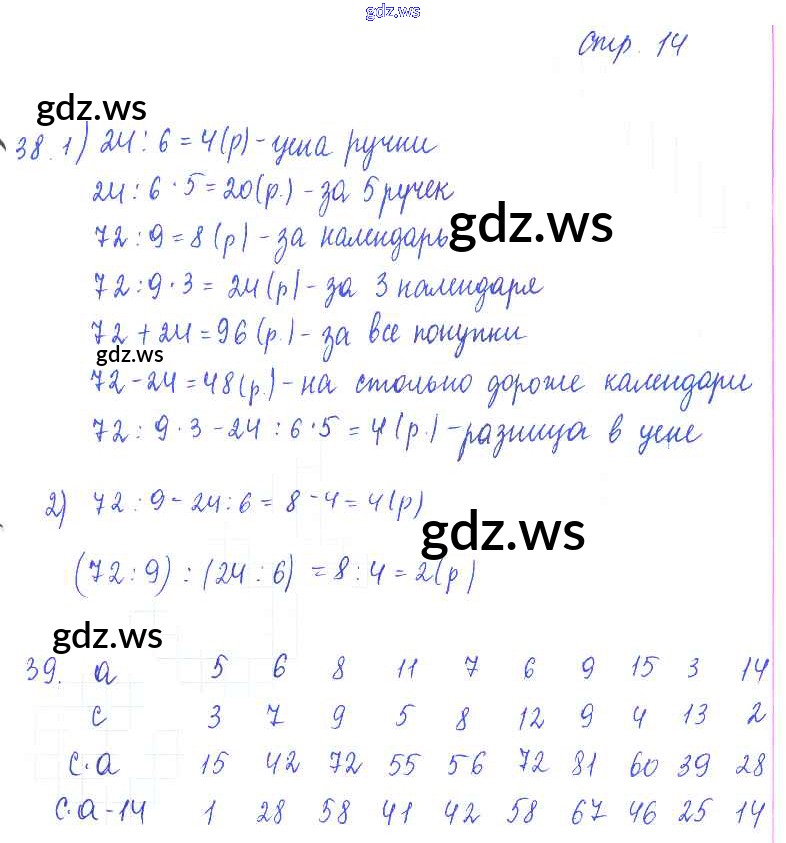 gdz.ws
стр. 14
gdz.ws
38. 1) 24 : 6 = 4 (р) - цена ручки
24 : 6 · 5 = 20 (р.) - за 5 ручек
72 : 9 = 8 (р) - за календарь
gdz.ws
72 : 9 · 3 = 24 (р) - за 3 календаря
72 + 24 = 96 (р.) - за все покупки
gdz.ws
72 - 24 = 48 (р.) - на столько дороже календари
72 : 9 · 3 - 24 : 6 · 5 = 4 (р.) - разница в цене
2) 72 : 9 - 24 : 6 = 8 - 4 = 4 (р)
gdz.ws
(72 : 9) : (24 : 6) = 8 : 4 = 2 (р)
gdz.ws
39. а 5 6 8 11 7 6 9 15 3 14
с 3 7 9 5 8 12 9 4 13 2
с·а 15 42 72 55 56 72 81 60 39 28
с·а-14 1 28 58 41 42 58 67 46 25 14